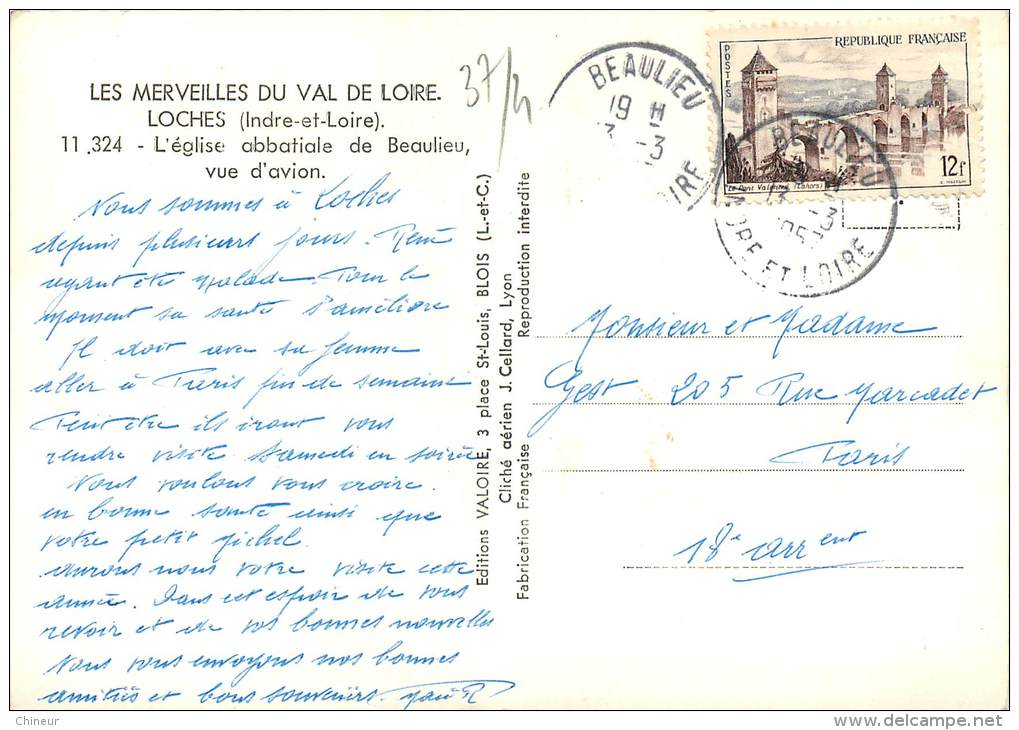 LES MERVEILLES DU VAL DE LOIRE.
LOCHES (Indre-et-Loire).
11.324 - L'église abbatiale de Beaulieu,
vue d'avion.
37/4
Nous sommes à Loches
depuis plusieurs jours. René
ayant été malade. Pour le
moment sa santé s'améliore
Il doit avec sa femme
aller à Paris fin de semaine
Peut être ils iront vous
rendre visite Samedi en soirée
Nous voulons vous croire
en bonne santé ainsi que
votre petit Michel.
aurons nous votre visite cette
année. Dans cet espoir de vous
revoir et de vos bonnes nouvelles
Nous vous envoyons nos bonnes
amitiés et bons souvenirs.
Editions VALOIRE, 3 place St-Louis, BLOIS (L.-et-C.)
Cliché aérien J. Cellard, Lyon
Fabrication Française Reproduction interdite
BEAULIEU
19 H
3 -3
IRE
POSTES
REPUBLIQUE FRANÇAISE
12f
Le Pont Valentré (Cahors)
BEAULIEU
INDRE ET LOIRE
Monsieur et Madame
Gest 205 Rue Marcadet
Paris
18e arrent
Chineur
delcampe.net